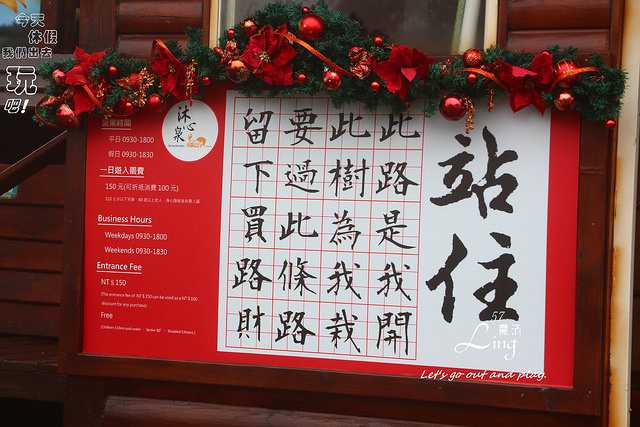 今天
休假
我們出去
玩
吧!
沐心泉
營業時間
平日 0930-1800
假日 0930-1830
一日遊入園費
150 元(可折抵消費 100 元)
Business Hours
Weekdays 0930-1800
Weekends 0930-1830
Entrance Fee
NT $ 150
(The entrance fee of NT $ 150 can be used as a NT $ 100
discount for any purchase)
Free
站住
此路是我開
此樹為我栽
要過此條路
留下買路財
57
魔法
Ling
Let's go out and play.